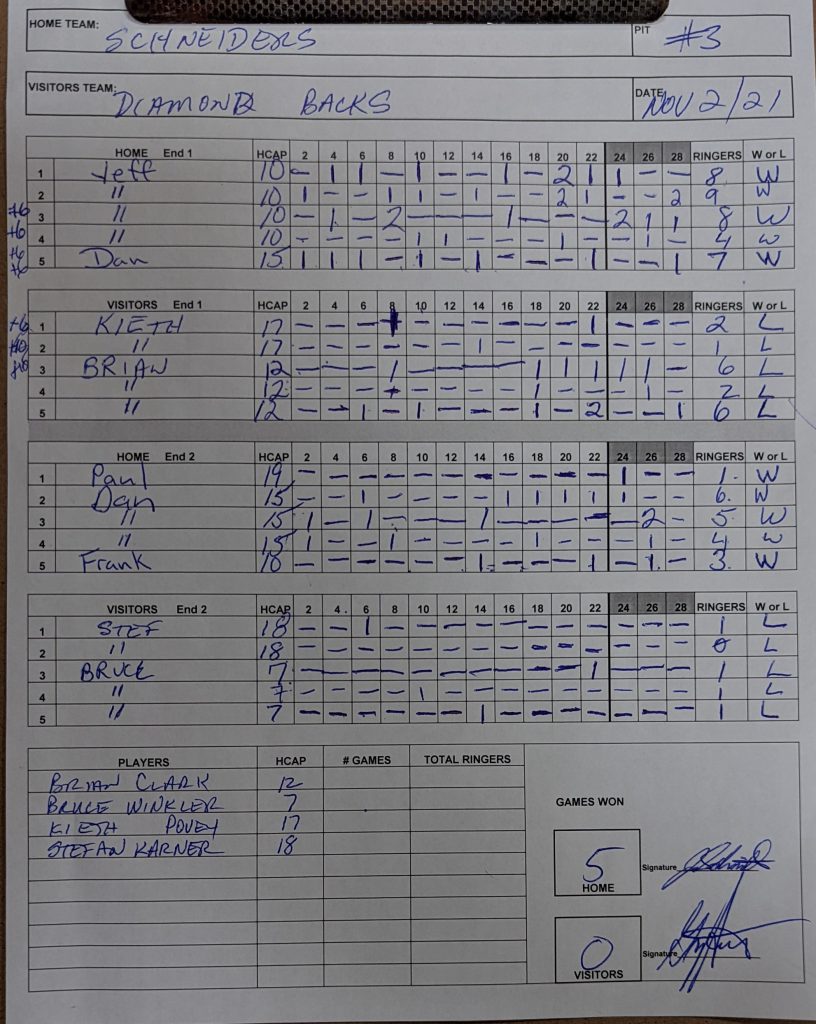 HOME TEAM: SCHNEIDERS PIT #3
VISITORS TEAM: DIAMOND BACKS DATE NOV 2/21
HOME End 1 HCAP 2 4 6 8 10 12 14 16 18 20 22 24 26 28 RINGERS W or L
1 Jeff 10 - 1 1 - 1 - - 1 - 2 1 1 - - 8 W
2 " 10 1 - - 1 1 - 1 - - 2 1 - - 2 9 W
+6 3 " 10 - 1 - 2 - - - 1 - - - 2 1 1 8 W
+6 4 " 10 - - - - 1 1 - - - 1 - - 1 - 4 W
+6 +6 5 Dan 15 1 1 1 - 1 - 1 - - - 1 - - 1 7 W
VISITORS End 1 HCAP 2 4 6 8 10 12 14 16 18 20 22 24 26 28 RINGERS W or L
+6 1 KIETH 17 - - - 1 - - - - - - 1 - - - 2 L
2 " 17 - - - - - - 1 - - - - - - - 1 L
3 BRIAN 12 - - - 1 - - - - 1 1 1 1 1 - 6 L
4 " 12 - - - - - - - - 1 - - - 1 - 2 L
5 " 12 - - 1 - 1 - - - 1 - 2 - - 1 6 L
HOME End 2 HCAP 2 4 6 8 10 12 14 16 18 20 22 24 26 28 RINGERS W or L
1 Paul 19 - - - - - - - - - - - 1 - - 1. W
2 Dan 15 - - 1 - - - - 1 1 1 1 1 - - 6. W
3 " 15 1 - 1 - - - 1 - - - - - 2 - 5 W
4 " 15 1 - - 1 - - - - 1 - - - 1 - 4 W
5 Frank 10 - - - - - - 1 - - - 1 - 1 - 3. W
VISITORS End 2 HCAP 2 4. 6 8 10 12 14 16 18 20 22 24 26 28 RINGERS W or L
1 STEF 18 - - 1 - - - - - - - - - - - 1 L
2 " 18 - - - - - - - - - - - - - - 0 L
3 BRUCE 7 - - - - - - - - - - 1 - - - 1 L
4 " 7 - - - - 1 - - - - - - - - - 1 L
5 " 7 - - - - - - 1 - - - - - - - 1 L
PLAYERS HCAP # GAMES TOTAL RINGERS
BRIAN CLARK 12
BRUCE WINKLER 7
KIETH POVEY 17
STEFAN KARNER 18
GAMES WON
5 Signature
HOME
0 Signature
VISITORS